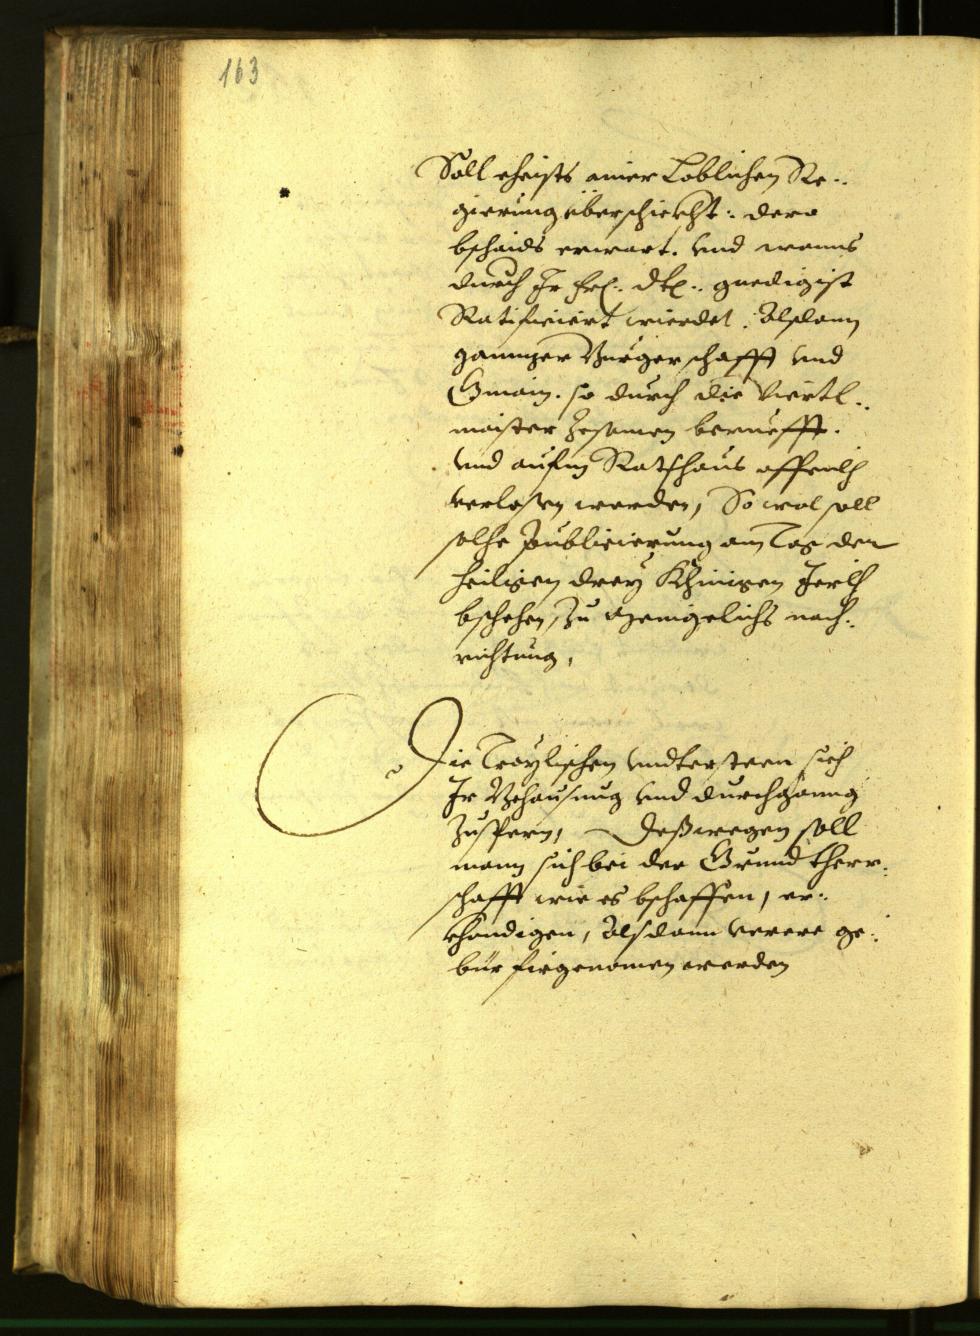 163
Soll eheists ainer Loblichen Re„
gierung überschickht: dero
bschaids erwart. und wanns
durch Ir frl: dhl: gnedigist
Ratificiert wierdet. Alsdann
gannzer Burgerschafft und
Gmain. so durch die Viertl„
maister zesamen beruefft.
und aufm Rathaus offenlich
verlesen werden, So wol soll
solche Publicierung am Tag der
heiligen drey Khinigen Jerlich
bschehen, zu menigelichs nach„
richtung,
Die Troylischen undtersteen sich
Ir Behausung und durchganng
zusperrn, Desswegen soll
mann sich bei der Grundtherr„
schafft wie es bschaffen, er„
khundigen, Alsdann verere ge„
bür firgenomen werden